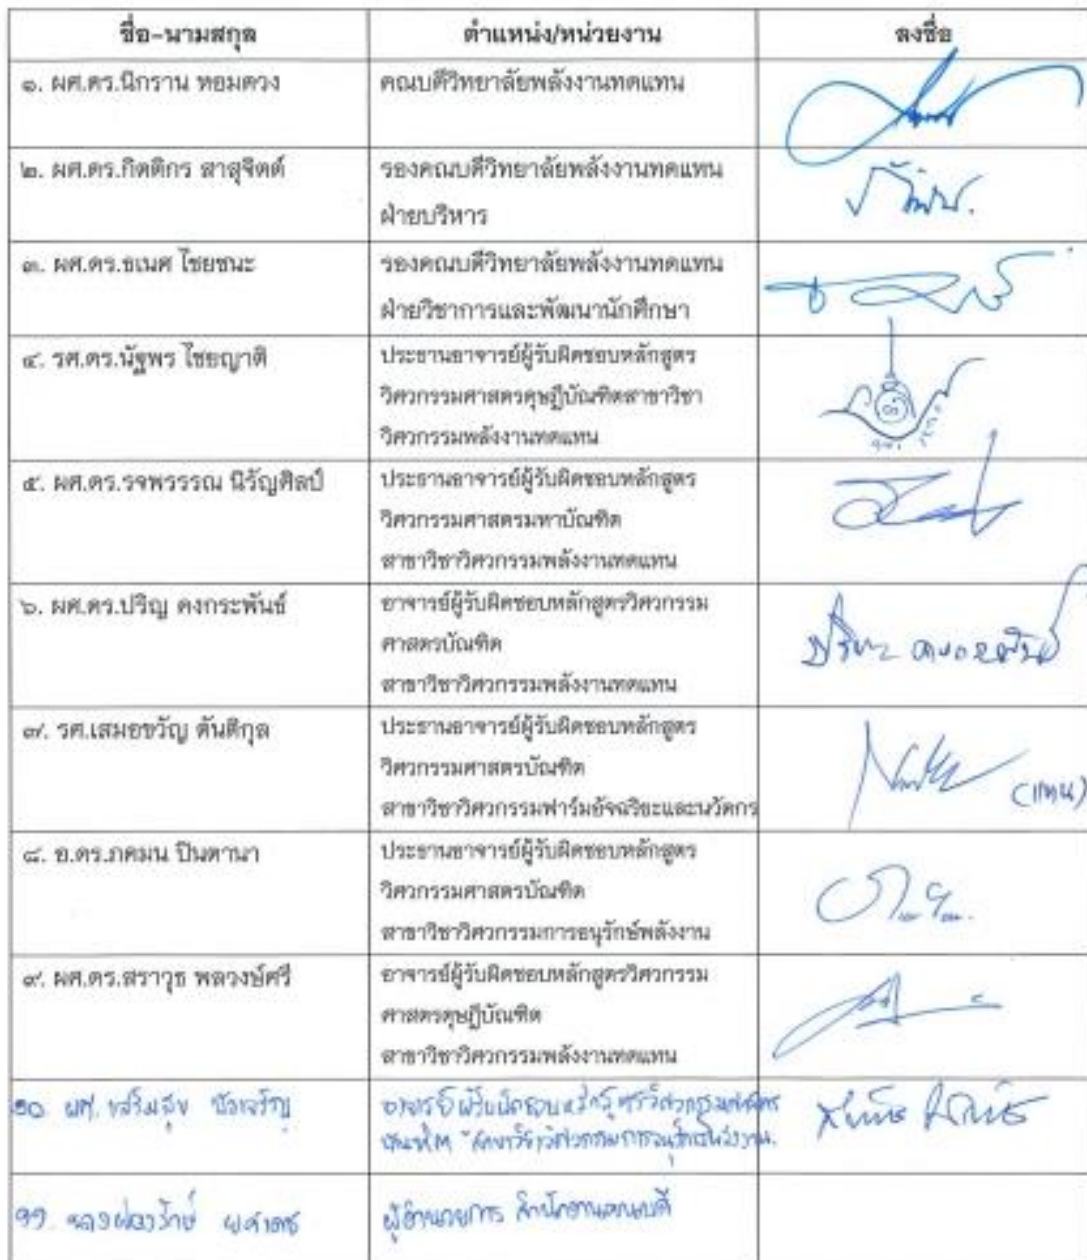 ชื่อ-นามสกุล ตำแหน่ง/หน่วยงาน ลงชื่อ
๑. ผศ.ดร.นิกราน หอมดวง คณบดีวิทยาลัยพลังงานทดแทน
๒. ผศ.ดร.กิตติกร สาสุจิตต์ รองคณบดีวิทยาลัยพลังงานทดแทน
ฝ่ายบริหาร
๓. ผศ.ดร.ธเนศ ไชยชนะ รองคณบดีวิทยาลัยพลังงานทดแทน
ฝ่ายวิชาการและพัฒนานักศึกษา
๔. รศ.ดร.นัฐพร ไชยญาติ ประธานอาจารย์ผู้รับผิดชอบหลักสูตร
วิศวกรรมศาสตรดุษฎีบัณฑิตสาขาวิชา
วิศวกรรมพลังงานทดแทน
๕. ผศ.ดร.รจพรรรณ นิรัญศิลป์ ประธานอาจารย์ผู้รับผิดชอบหลักสูตร
วิศวกรรมศาสตรมหาบัณฑิต
สาขาวิชาวิศวกรรมพลังงานทดแทน
๖. ผศ.ดร.ปริญ คงกระพันธ์ อาจารย์ผู้รับผิดชอบหลักสูตรวิศวกรรม
ศาสตรบัณฑิต
สาขาวิชาวิศวกรรมพลังงานทดแทน
๗. รศ.เสมอขวัญ ตันติกุล ประธานอาจารย์ผู้รับผิดชอบหลักสูตร
วิศวกรรมศาสตรบัณฑิต
สาขาวิชาวิศวกรรมฟาร์มอัจฉริยะและนวัตกร (แทน)
๘. อ.ดร.ภคมน ปินตานา ประธานอาจารย์ผู้รับผิดชอบหลักสูตร
วิศวกรรมศาสตรบัณฑิต
สาขาวิชาวิศวกรรมการอนุรักษ์พลังงาน
๙. ผศ.ดร.สราวุธ พลวงษ์ศรี อาจารย์ผู้รับผิดชอบหลักสูตรวิศวกรรม
ศาสตรดุษฎีบัณฑิต
สาขาวิชาวิศวกรรมพลังงานทดแทน
๑๐. ผศ. เสริมสุข บัวเจริญ อาจารย์ผู้รับผิดชอบหลักสูตรวิศวกรรมศาสตร
บัณฑิต สาขาวิชาวิศวกรรมการอนุรักษ์พลังงาน
๑๑. ผู้อำนวยการ สำนักงานคณบดี